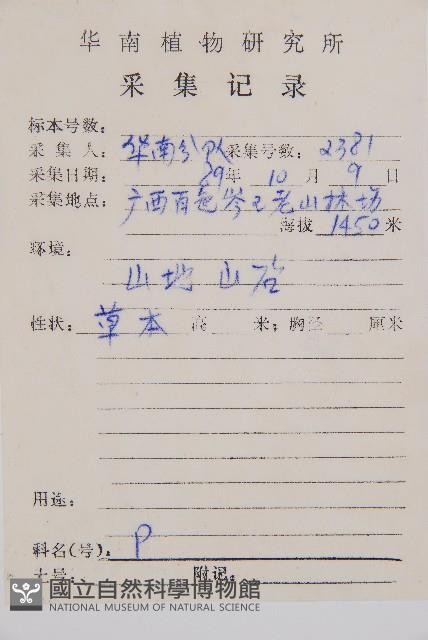 华南植物研究所
采集记录
标本号数：
采集人：华南分队 采集号数：2381
采集日期：89年10月9日
采集地点：广西百色岑王老山林场
海拔 1450 米
环境：
山地 山
性状：草本 高 米；胸径 厘米
用途：
科名(号)：P
土名： 附记：
國立自然科學博物館
NATIONAL MUSEUM OF NATURAL SCIENCE